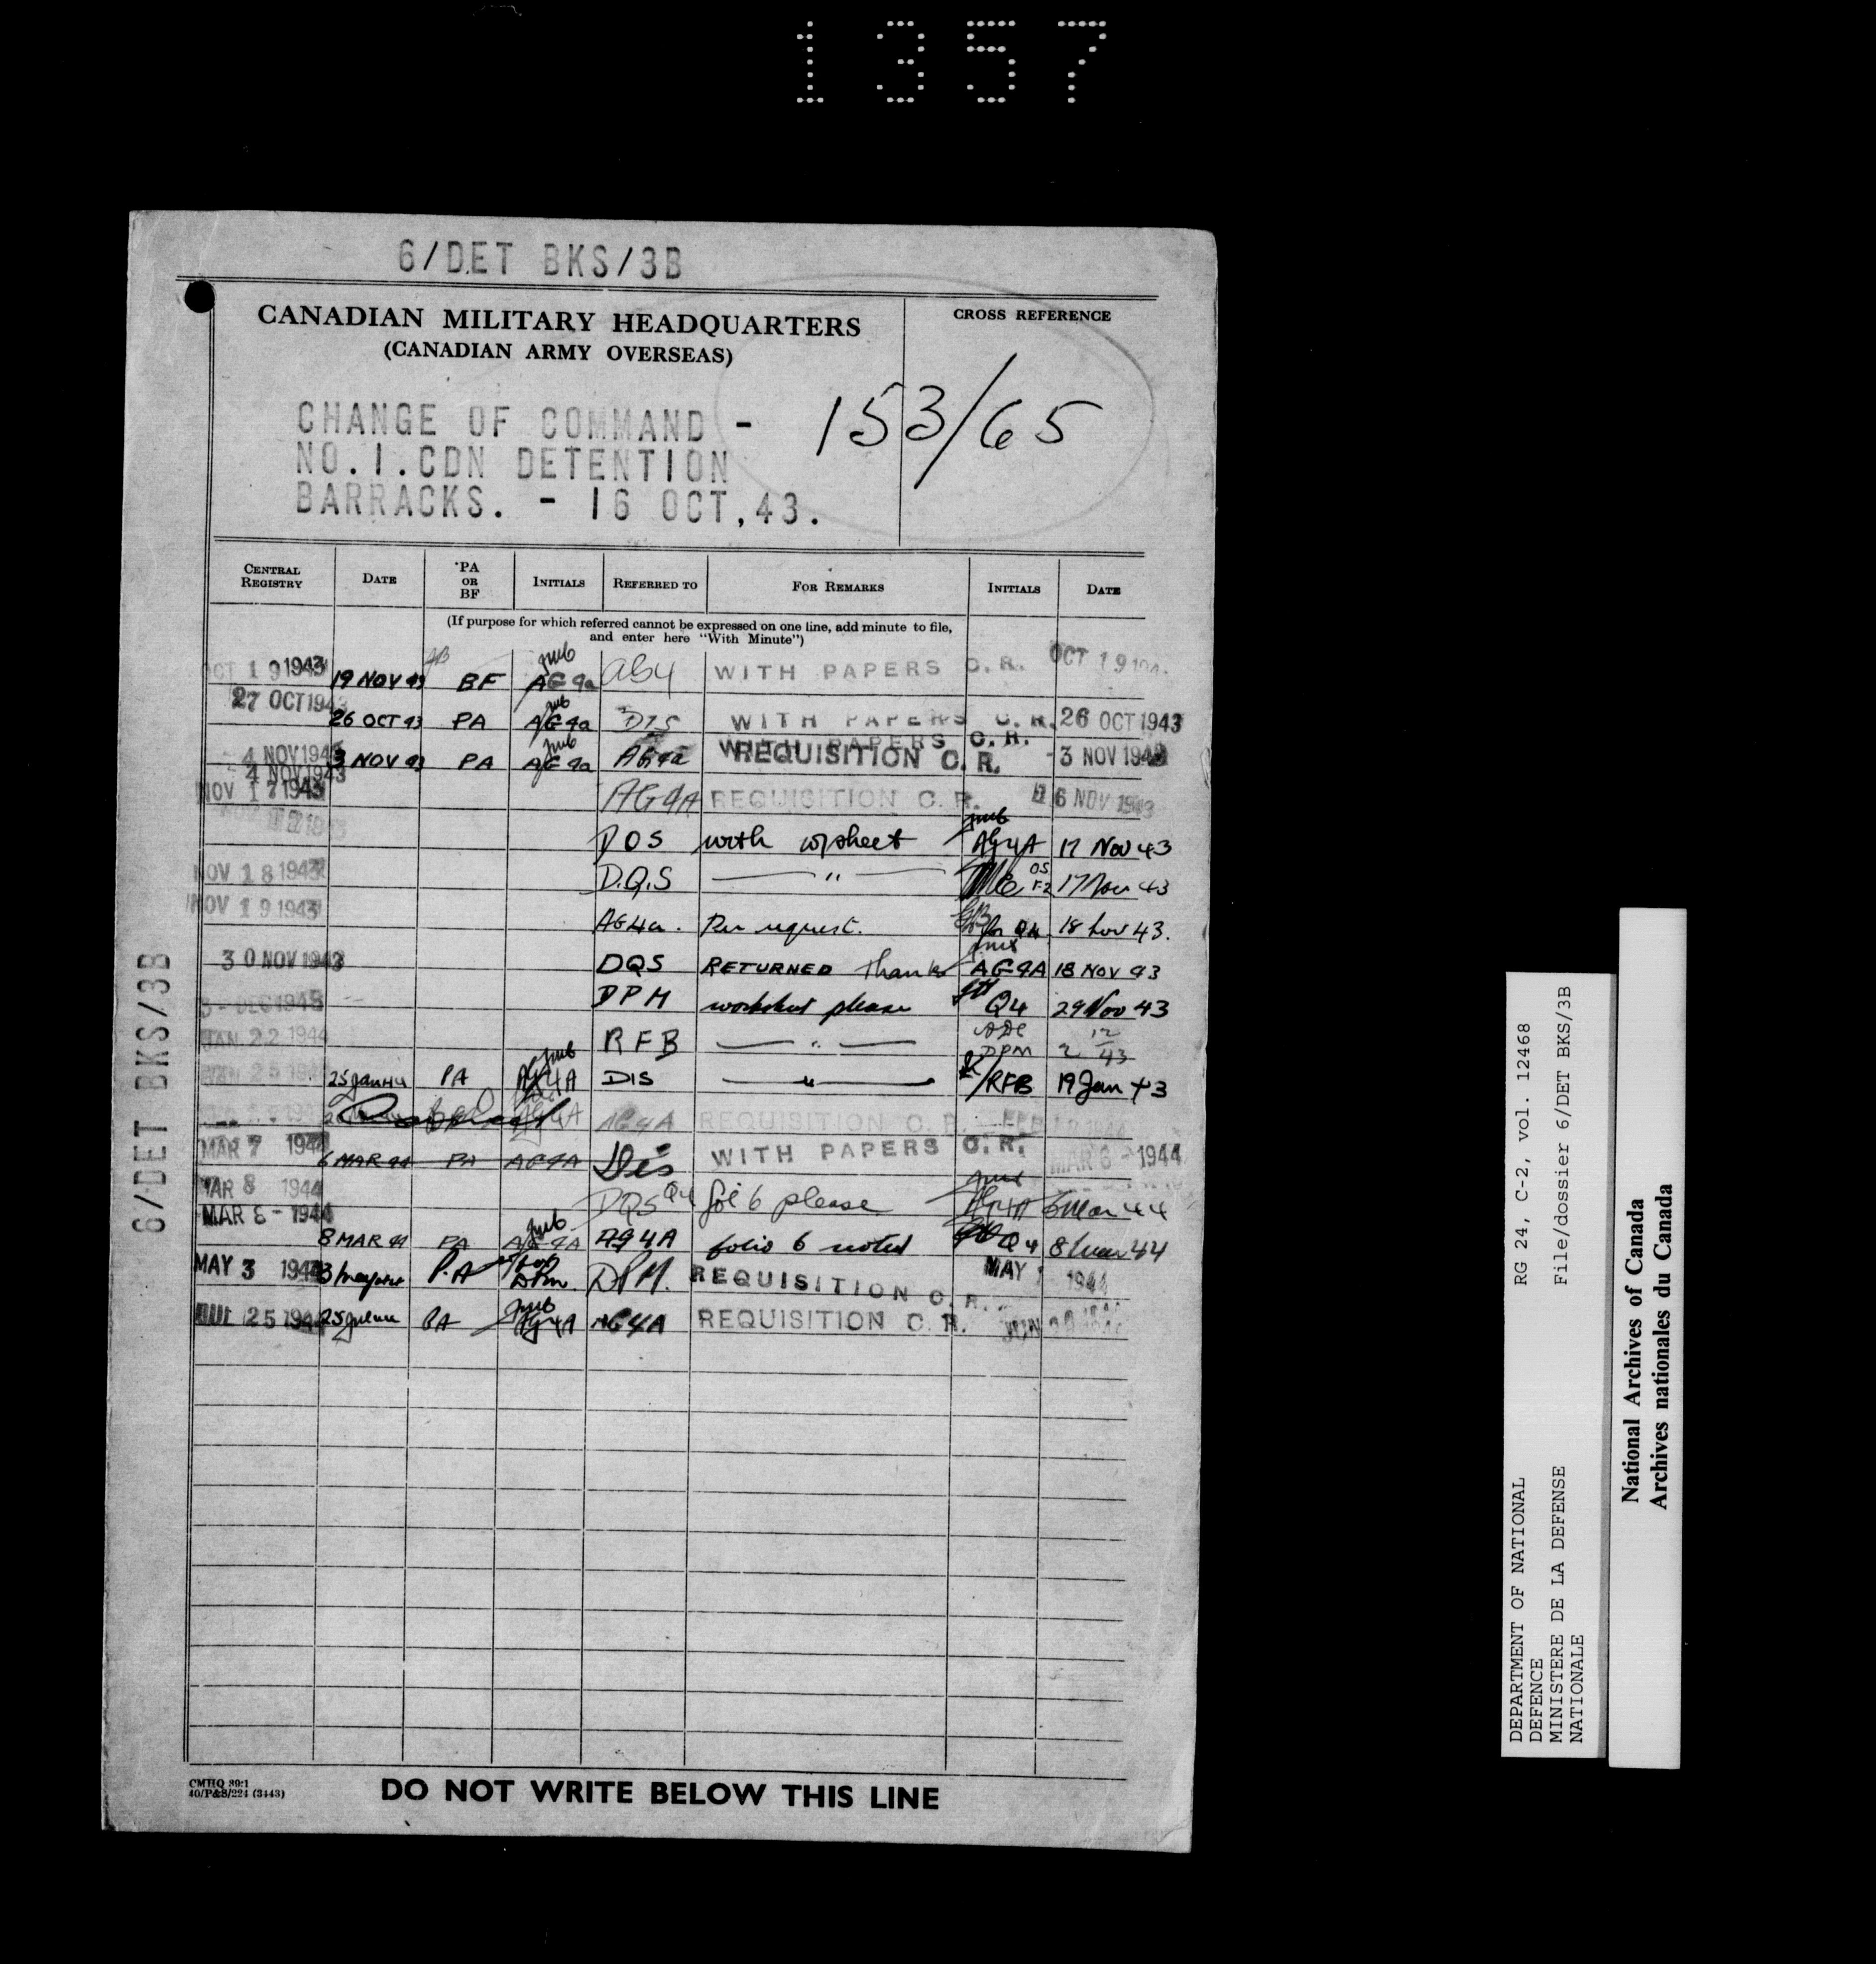 1357
6/DET BKS/3B
CANADIAN MILITARY HEADQUARTERS
(CANADIAN ARMY OVERSEAS)
CROSS REFERENCE
153/65
CHANGE OF COMMAND -
NO.1.CDN DETENTION
BARRACKS. - 16 OCT,43.
CENTRAL REGISTRY DATE PA OR BF INITIALS REFERRED TO FOR REMARKS INITIALS DATE
(If purpose for which referred cannot be expressed on one line, add minute to file,
and enter here "With Minute")
OCT 19 1943 19 NOV 43 BF AG4a AG4 WITH PAPERS C.R. OCT 19
27 OCT 1943 26 OCT 43 PA AG4a DIS WITH PAPERS C.R. 26 OCT 1943
WITH PAPERS C.R.
4 NOV 1943 3 NOV 43 PA AG4a AG4a REQUISITION C.R. 3 NOV 1943
4 NOV 1943
NOV 17 1943 AG4A REQUISITION C.R. 16 NOV 1943
DOS with w/sheet AG4A 17 Nov 43
NOV 18 1943 D.Q.S — " — OS F2 17 Nov 43
NOV 19 1943 AG4a. Per request. Q4 18 Nov 43.
30 NOV 1943 DQS RETURNED thanks AG4A 18 NOV 43
3 - DEC 1943 DPM worksheet please Q4 29 Nov 43
JAN 22 1944 RFB — " — DPM 2 12/43
JAN 25 1944 25 Jan 44 PA AG4A DIS — " — RFB 19 Jan 43
AG4A AG4A REQUISITION C.R. FEB 1944
MAR 7 1944 6 MAR 44 PA AG4A DIS WITH PAPERS C.R. MAR 6 - 1944
MAR 8 1944 DQS Q4 fol 6 please AG4A 6 Mar 44
MAR 8 - 1944
8 MAR 44 PA AG4A AG4A folio 6 noted Q4 8 Mar 44
MAY 3 1944 3/may/44 P.A DPM. DPM. REQUISITION C.R. MAY 1 1944
JUL 25 1944 25 PA AG4A AG4A REQUISITION C.R.
6/DET BKS/3B
CMHQ 39:1
40/P&S/224 (3443)
DO NOT WRITE BELOW THIS LINE
DEPARTMENT OF NATIONAL
DEFENCE
MINISTERE DE LA DEFENSE
NATIONALE
RG 24, C-2, vol. 12468
File/dossier 6/DET BKS/3B
National Archives of Canada
Archives nationales du Canada